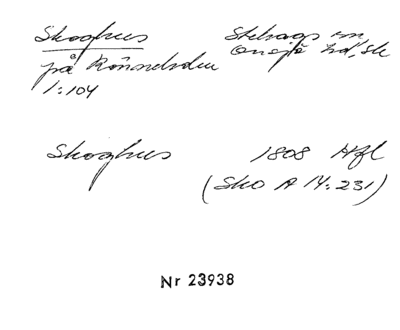 Skoghus Stehags sn
på Rönneholm Onsjö hd, Sk
1:104
Skoghus 1808 Hfl
(Sko A 14:231)
Nr 23938